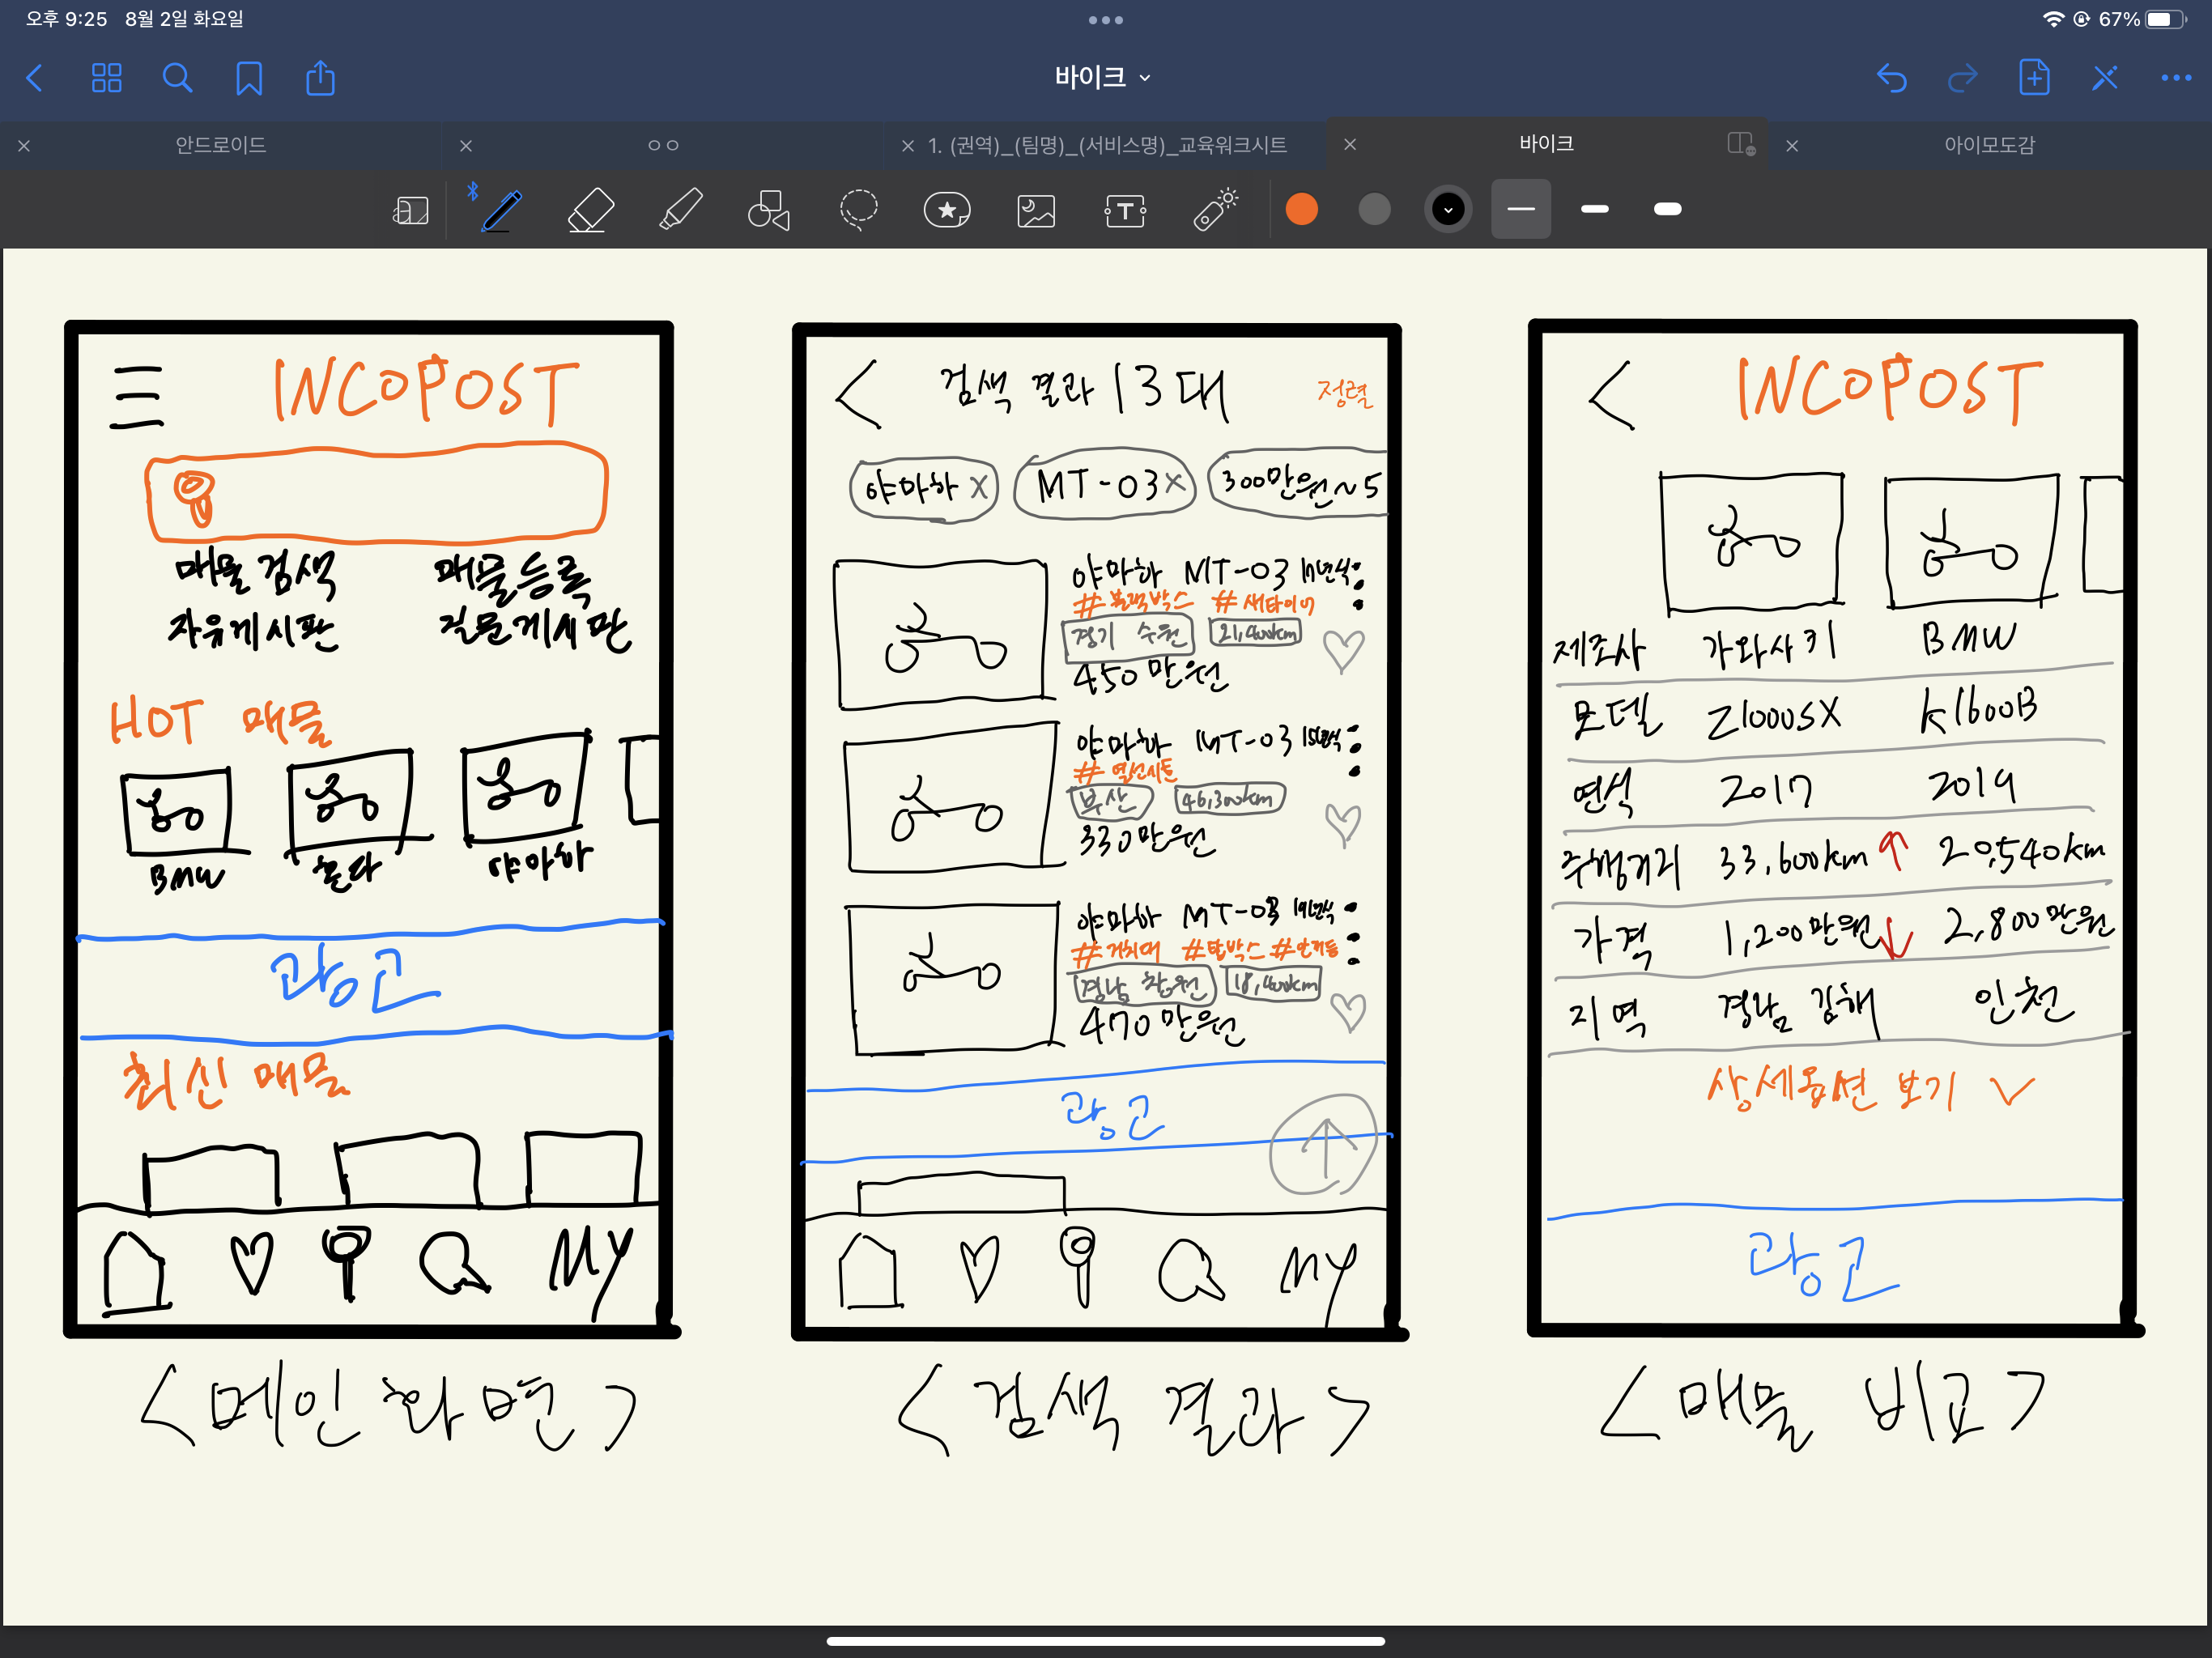 오후 9:25 8월 2일 화요일
67%
바이크
안드로이드
ㅇㅇ
1. (권역)_(팀명)_(서비스명)_교육워크시트
바이크
아이모도감
INCOPOST
매물 검색 매물 등록
자유게시판 질문게시판
HOT 매물
BMW 혼다 야마하
광고
최신 매물
MY
<메인 화면>
검색 결과 13대
정렬
야마하 X MT-03 X 300만원~5
야마하 MT-03 17년식
#블랙박스 #새타이어
경기 수원 21,400km
450만원
야마하 MT-03 15년식
#열선시트
부산 46,300km
330만원
야마하 MT-03 19년식
#거치대 #탑박스 #안개등
경남 창원 18,400km
470만원
광고
MY
<검색 결과>
INCOPOST
제조사 가와사키 BMW
모델 Z1000SX K1600B
연식 2017 2019
주행거리 33,600km ↑ 20,540km
가격 1,200만원 ↓ 2,800만원
지역 경남 김해 인천
상세옵션 보기
광고
<매물 비교>